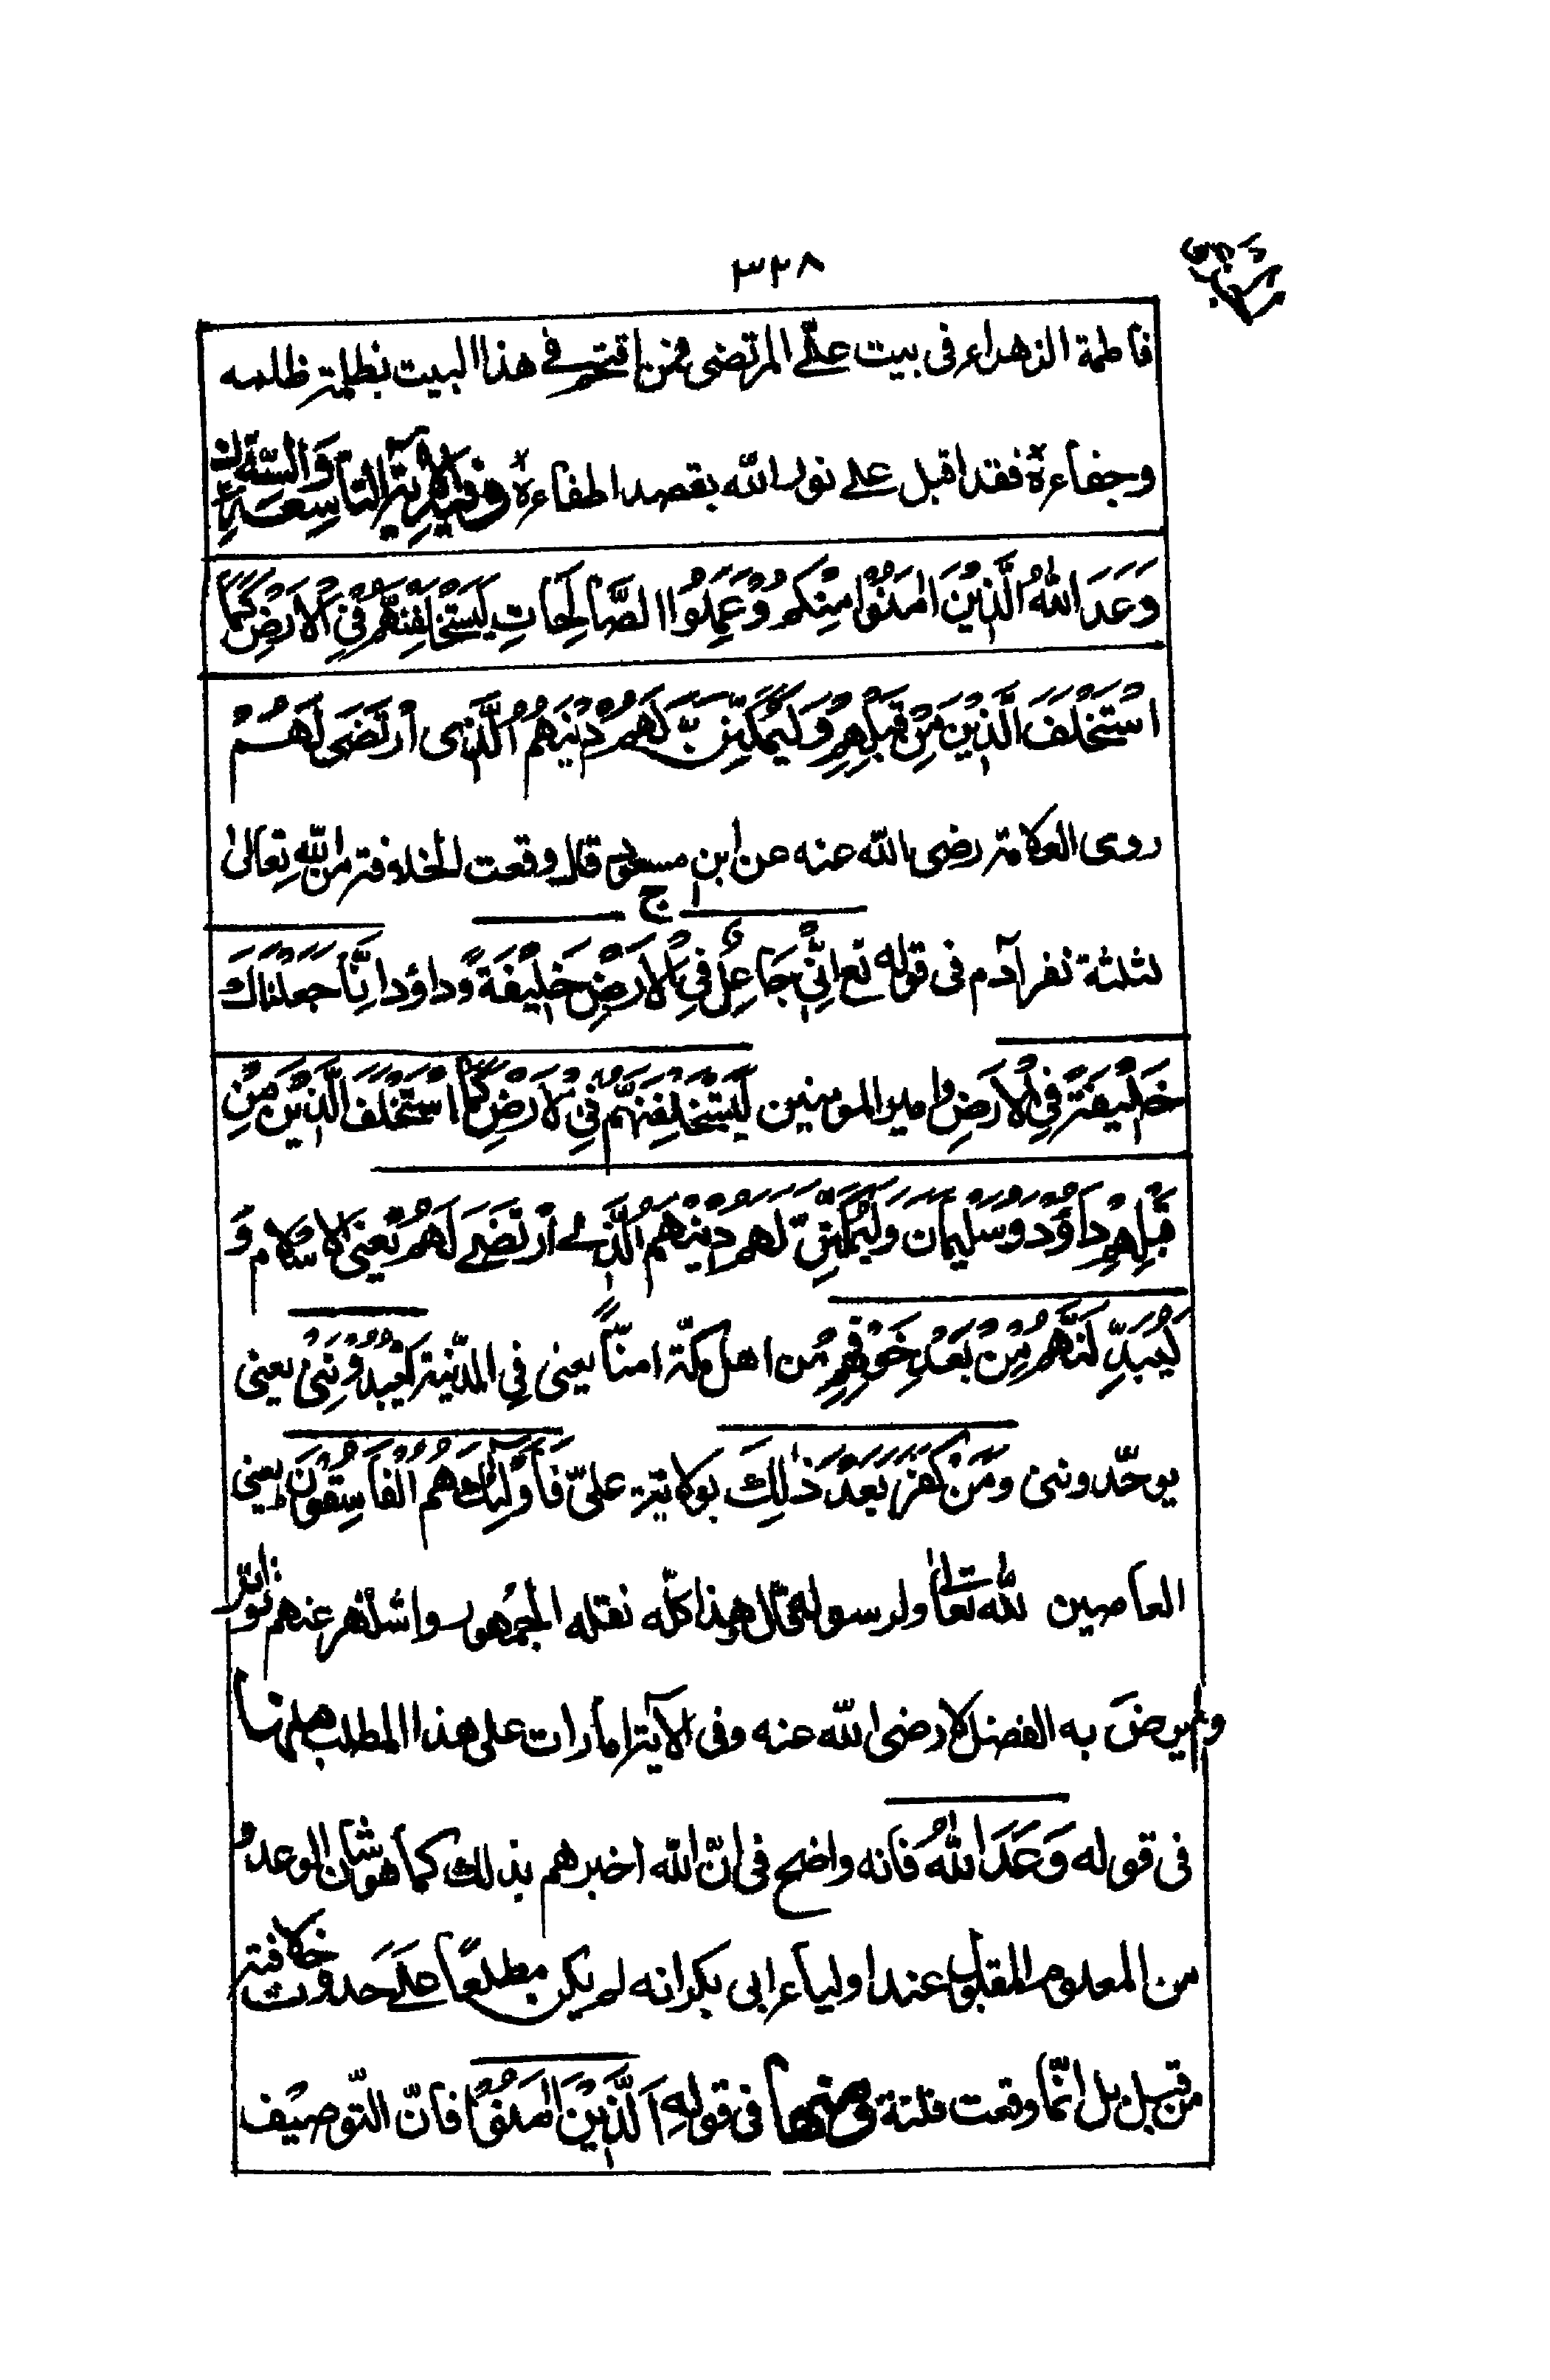 ٣٢٨
فاطمة الزهراء فى بيت علىّ المرتضى فمن اقتحم فى هذا البيت بظلمة ظلمه
وجفاءه فقد اقبل على نور الله بقصد اطفاءه وفى الآية التاسعة والستون
وَعَدَ اللهُ الَّذِيْنَ اٰمَنُوْا مِنْكُمْ وَعَمِلُوا الصَّالِحَاتِ لَيَسْتَخْلِفَنَّهُمْ فِى الْاَرْضِ كَمَا
اسْتَخْلَفَ الَّذِيْنَ مِنْ قَبْلِهِمْ وَلَيُمَكِّنَنَّ لَهُمْ دِيْنَهُمُ الَّذِى ارْتَضَى لَهُمْ
روى العلامة رضى الله عنه عن ابن مسعود قال وقعت الخلافة من الله تعالى
لثلثة نفر آدم فى قوله تع اِنِّىْ جَاعِلٌ فِى الْاَرْضِ خَلِيْفَةً وداؤد اِنَّا جَعَلْنَاكَ
خَلِيْفَةً فِى الْاَرْضِ وامير المومنين لَيَسْتَخْلِفَنَّهُمْ فِى الْاَرْضِ كَمَا اسْتَخْلَفَ الَّذِيْنَ مِنْ
قَبْلِهِمْ دَاوُدَ وَسُلَيْمَانَ وَلَيُمَكِّنَنَّ لَهُمْ دِيْنَهُمُ الَّذِى ارْتَضَى لَهُمْ يَعْنِى الاسْلَام وَ
لَيُبَدِّلَنَّهُمْ مِنْ بَعْدِ خَوْفِهِمْ مِن اهل مكّة امنًا يعنى فى المدينة يَعْبُدُوْنَنِىْ يعنى
يوحّدوننى وَمَنْ كَفَرَ بَعْدَ ذٰلِكَ بولاية علىّ فَاُولٰئِكَ هُمُ الْفَاسِقُوْنَ يعنى
العاصين لله تعالى ولرسوله قال هذا كلّه نقله الجمهور واشتهر عنهم تواتر
ولم يرض به الفضل لا رضى الله عنه وفى الآية امارات على هذا المطلب منها
فى قوله وَعَدَ اللهُ فانه واضح فى انّ الله اخبرهم بذلك كما هو شان الوعد و
من المعلوم المقبول عند اولياء ابى بكر انه لم يكن مطلعًا على حدوث خلافته
من قبل بل انّما وقعت فلتة ومنها فى قوله اَلَّذِيْنَ اٰمَنُوْا فانّ التّوصيف